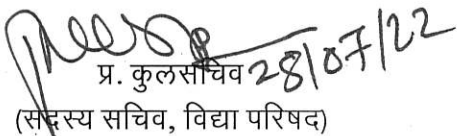 प्र. कुलसचिव 28/07/22
(सदस्य सचिव, विद्या परिषद)